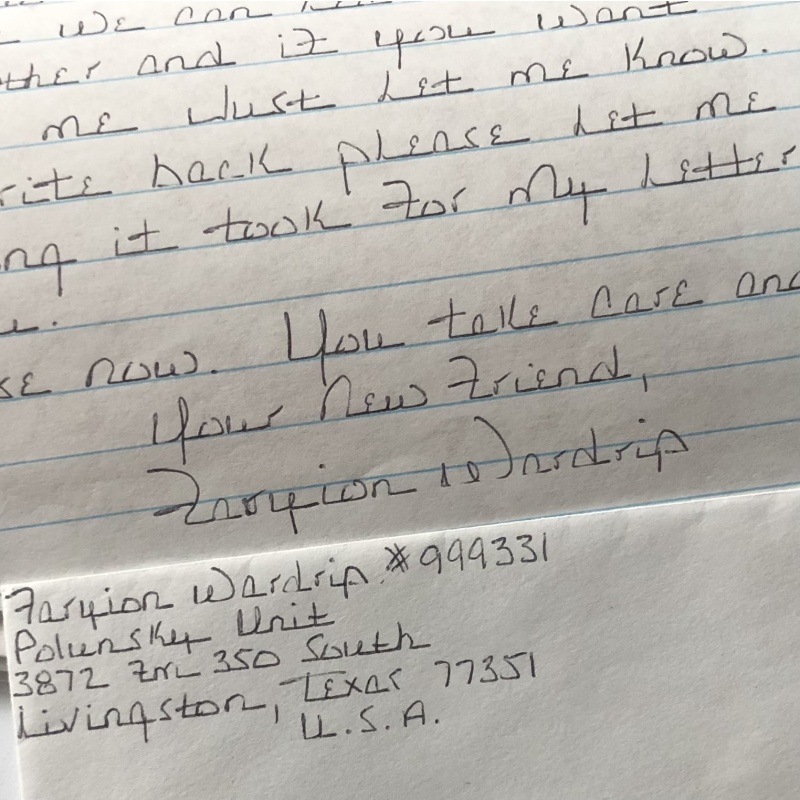 we can
ther and if you want
me Just Let me Know.
rite back please Let me
ng it took for my Letter
u.
se now. You take care and
Your New Friend,
Faryion Wardrip
Faryion Wardrip #999331
Polunsky Unit
3872 FM 350 South
Livingston, Texas 77351
U.S.A.